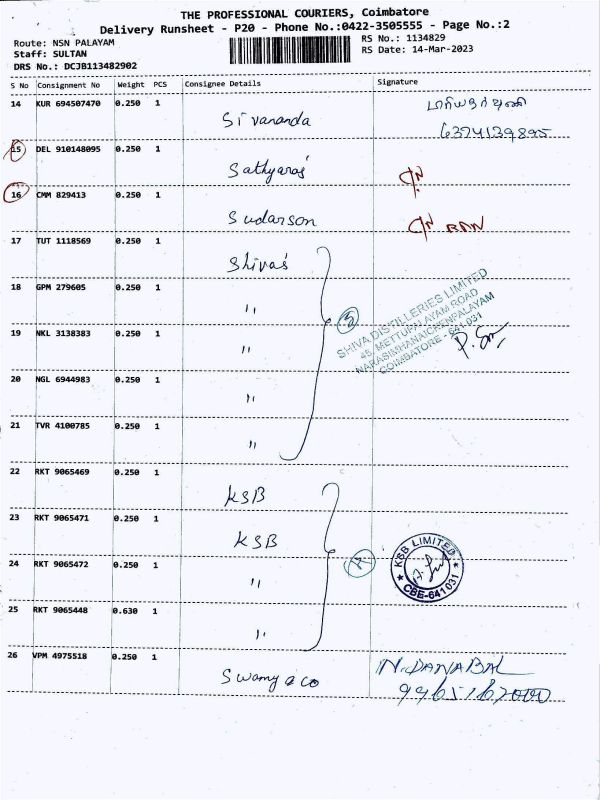 THE PROFESSIONAL COURIERS, Coimbatore
Delivery Runsheet - P20 - Phone No.:0422-3505555 - Page No.:2
Route: NSN PALAYAM
RS No.: 1134829
Staff: SULTAN
RS Date: 14-Mar-2023
DRS No.: DCJB113482902
S No Consignment No Weight PCS Consignee Details Signature
14 KUR 694507470 0.250 1 Sivananda
6374139895
15 DEL 910148095 0.250 1 Sathyaraj
16 CMM 829413 0.250 1 Sudarson
17 TUT 1118569 0.250 1 Shivas
18 GPM 279605 0.250 1 "
19 NKL 3138383 0.250 1 "
20 NGL 6944983 0.250 1 "
21 TVR 4100785 0.250 1 "
5
SHIVA DISTILLERIES LIMITED
45, METTUPALAYAM ROAD
NARASIMHANAICKENPALAYAM
COIMBATORE - 641 031
22 RKT 9065469 0.250 1 KSB
23 RKT 9065471 0.250 1 KSB
24 RKT 9065472 0.250 1 "
25 RKT 9065448 0.630 1 "
KSB LIMITED
CBE-641 031
26 VPM 4975518 0.250 1 Swamy & co
N. DANABAL